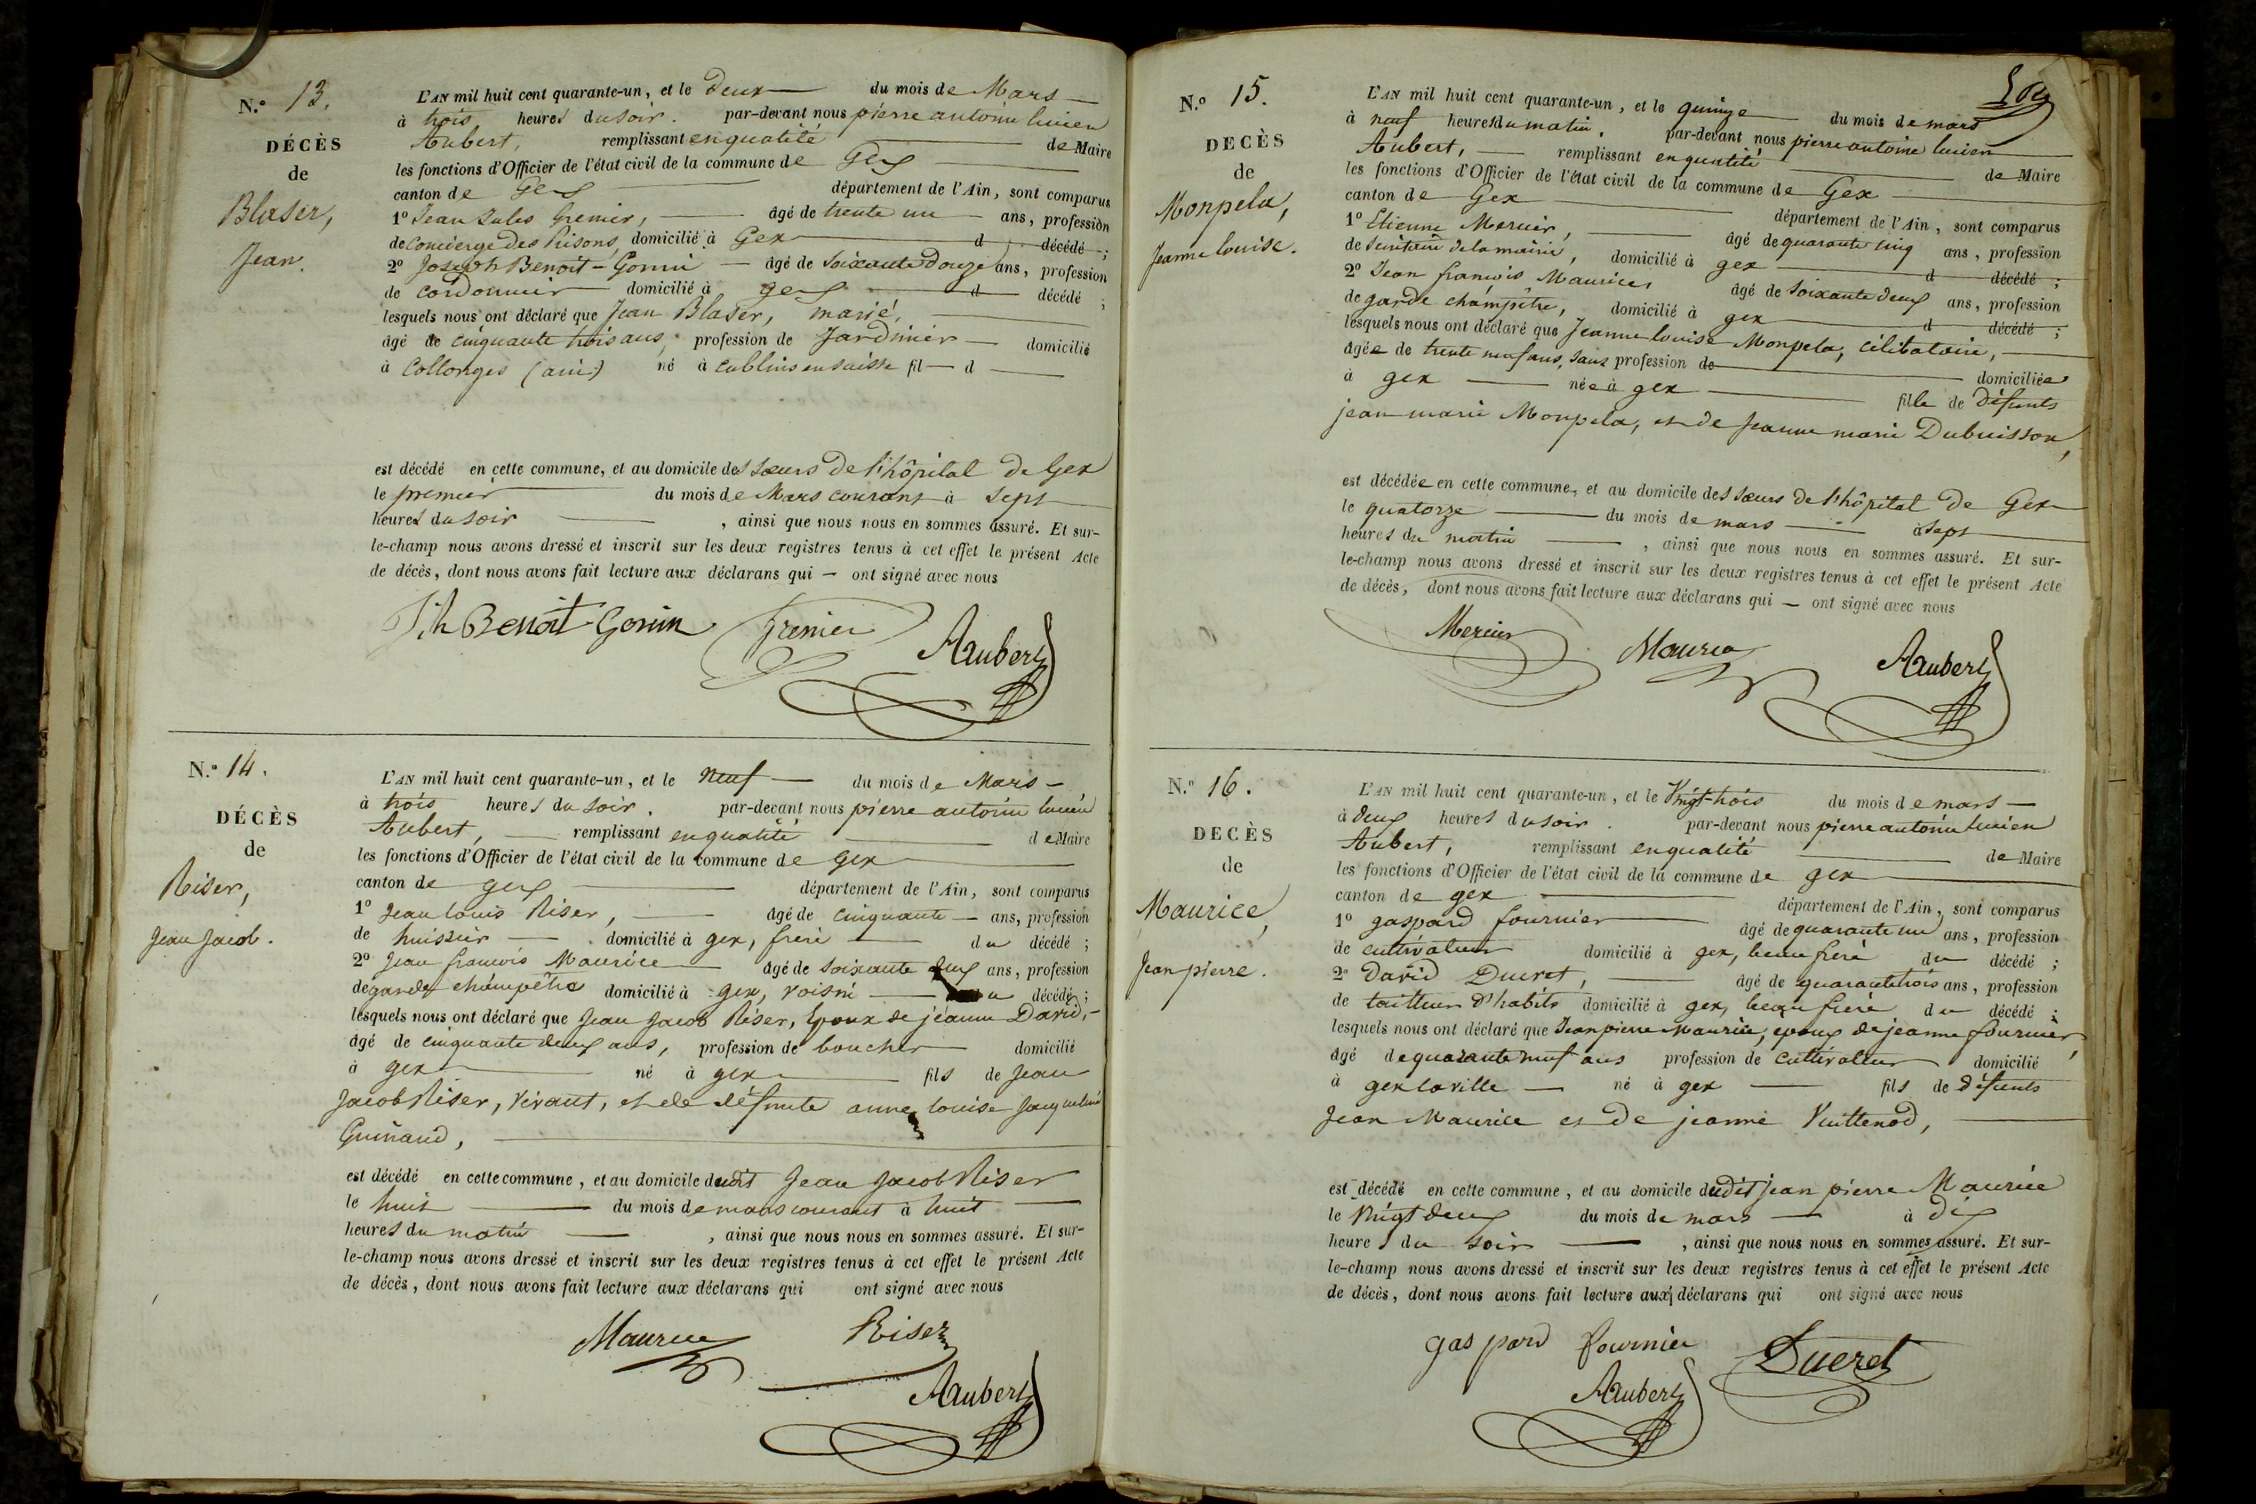 N.º 13.
DÉCÈS
de
Blaser,
Jean.
L'AN mil huit cent quarante-un, et le Deux du mois de Mars
à trois heures du soir. par-devant nous pierre antoine lucien
Aubert, remplissant en qualité de Maire
les fonctions d'Officier de l'état civil de la commune de Gex
canton de Gex département de l'Ain, sont comparus
1º Jean Jules Grenier, âgé de trente un ans, profession
de concierge des Prisons, domicilié à Gex d décédé ;
2º Joseph Benoit-Gonin âgé de soixante Douze ans, profession
de cordonnier domicilié à gex d décédé ;
lesquels nous ont déclaré que Jean Blaser, marié,
âgé de cinquante trois ans, profession de Jardinier domicilié
à Collonges (ain) né à cublins en suisse fil d
est décédé en cette commune, et au domicile des sœurs de l'hôpital de Gex
le premier du mois de Mars courant à sept
heures du soir , ainsi que nous nous en sommes assuré. Et sur-
le-champ nous avons dressé et inscrit sur les deux registres tenus à cet effet le présent Acte
de décès, dont nous avons fait lecture aux déclarans qui ont signé avec nous
Jh Benoit-Gonin Grenier Aubert
N.º 14.
DÉCÈS
de
Riser,
Jean Jacob.
L'AN mil huit cent quarante-un, et le neuf du mois de Mars
à trois heures du soir. par-devant nous pierre antoine lucien
Aubert, remplissant en qualité de Maire
les fonctions d'Officier de l'état civil de la commune de gex
canton de gex département de l'Ain, sont comparus
1º Jean louis Riser, âgé de cinquante ans, profession
de huissier domicilié à gex, frère du décédé ;
2º Jean françois Maurice âgé de soixante deux ans, profession
de garde champêtre domicilié à gex, voisin du décédé ;
lesquels nous ont déclaré que Jean Jacob Riser, Epoux de jeanne David,
âgé de cinquante deux ans, profession de boucher domicilié
à gex né à gex fils de Jean
Jacob Riser, vivant, et de défunte anne louise Jacqueline
Guinand,
est décédé en cette commune, et au domicile dudit Jean Jacob Riser
le huit du mois de mars courant à huit
heures du matin , ainsi que nous nous en sommes assuré. Et sur-
le-champ nous avons dressé et inscrit sur les deux registres tenus à cet effet le présent Acte
de décès, dont nous avons fait lecture aux déclarans qui ont signé avec nous
Maurice Riser
Aubert
N.º 15.
DECÈS
de
Monpela,
Jeanne louise.
L'AN mil huit cent quarante-un, et le quinze du mois de mars
à neuf heures du matin. par-devant nous pierre antoine lucien
Aubert, remplissant en qualité de Maire
les fonctions d'Officier de l'état civil de la commune de Gex
canton de Gex département de l'Ain, sont comparus
1º Etienne Mercier, âgé de quarante cinq ans, profession
de secrétaire de la mairie, domicilié à gex d décédé ;
2º Jean françois Maurice, âgé de soixante deux ans, profession
de garde champêtre, domicilié à gex d décédé ;
lesquels nous ont déclaré que Jeanne louise Monpela, célibataire,
âgée de trente neuf ans, sans profession de domiciliée
à gex née à gex fille de défunts
jean marie Monpela, et de jeanne marie Dubuisson,
est décédée en cette commune, et au domicile des sœurs de l'hôpital de Gex
le quatorze du mois de mars à sept
heures du matin , ainsi que nous nous en sommes assuré. Et sur-
le-champ nous avons dressé et inscrit sur les deux registres tenus à cet effet le présent Acte
de décès, dont nous avons fait lecture aux déclarans qui ont signé avec nous
Mercier Maurice Aubert
N.º 16.
DECÈS
de
Maurice,
Jean pierre.
L'AN mil huit cent quarante-un, et le Vingt-trois du mois de mars
à deux heures du soir. par-devant nous pierre antoine lucien
Aubert, remplissant en qualité de Maire
les fonctions d'Officier de l'état civil de la commune de gex
canton de gex département de l'Ain, sont comparus
1º gaspard fournier âgé de quarante un ans, profession
de cultivateur domicilié à gex, beau frère du décédé ;
2º David Ducret, âgé de quarante trois ans, profession
de tailleur d'habits domicilié à gex, beau frère du décédé ;
lesquels nous ont déclaré que Jean pierre Maurice, epoux de jeanne fournier,
âgé de quarante neuf ans profession de cultivateur domicilié
à gex la ville né à gex fils de défunts
Jean Maurice et de jeanne Vuittenod,
est décédé en cette commune, et au domicile dudit jean pierre Maurice
le vingt deux du mois de mars à dix
heures du soir , ainsi que nous nous en sommes assuré. Et sur-
le-champ nous avons dressé et inscrit sur les deux registres tenus à cet effet le présent Acte
de décès, dont nous avons fait lecture aux déclarans qui ont signé avec nous
gaspard fournier Ducret
Aubert